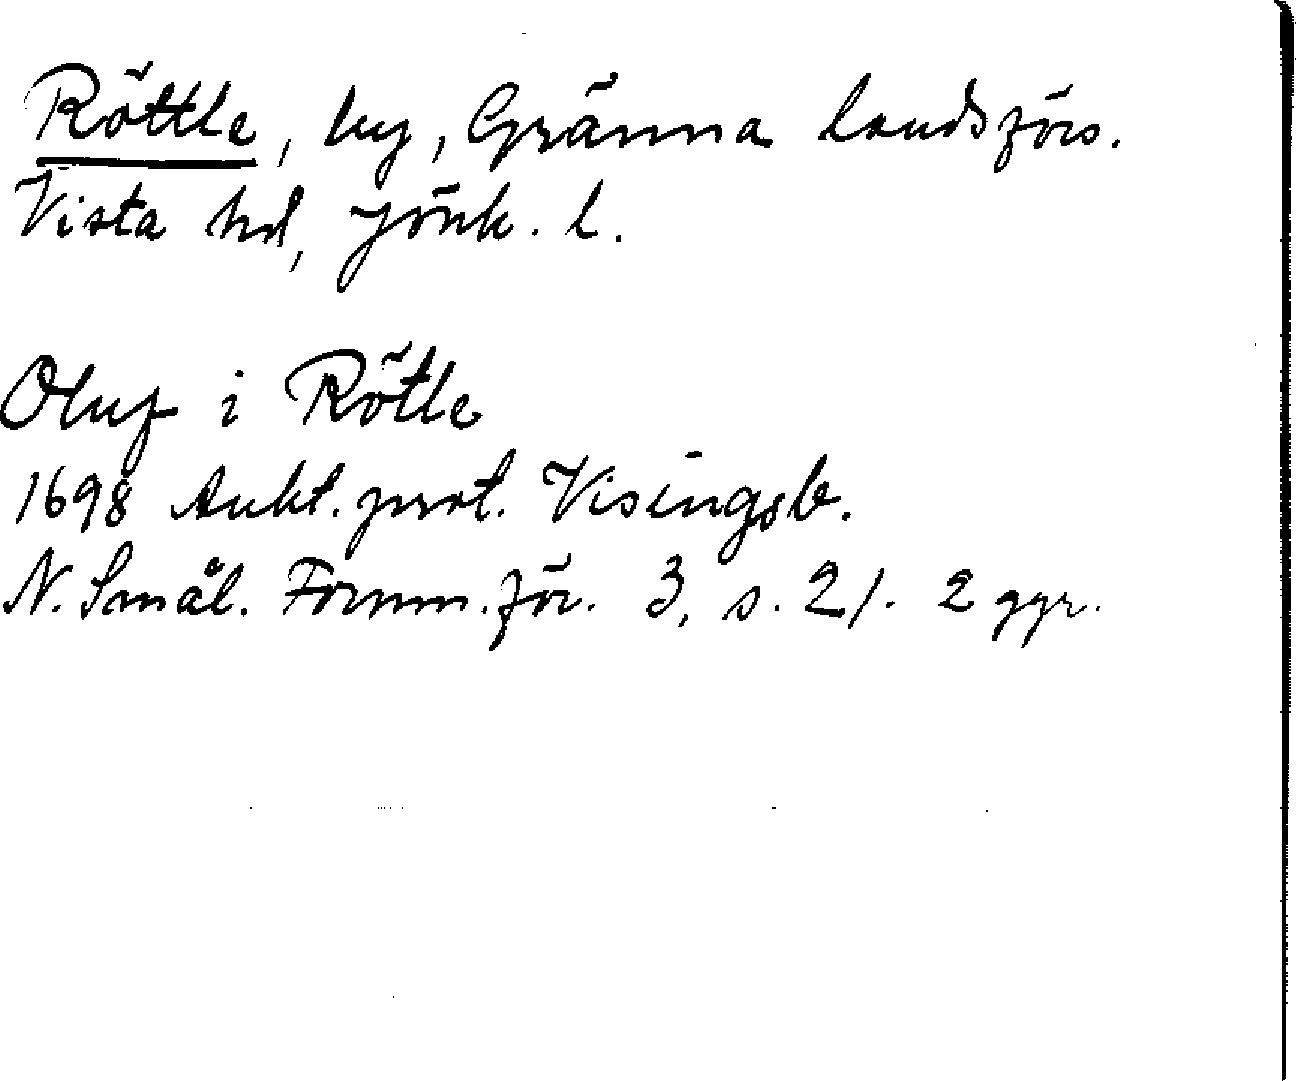 Röttle, by, Gränna landsförs.
Vista hd, Jönk. l.
Oluf i Rötle
1698 Aukt. prot. Visingsb.
N. Smål. Fornm. för. 3, s. 21. 2 ggr.